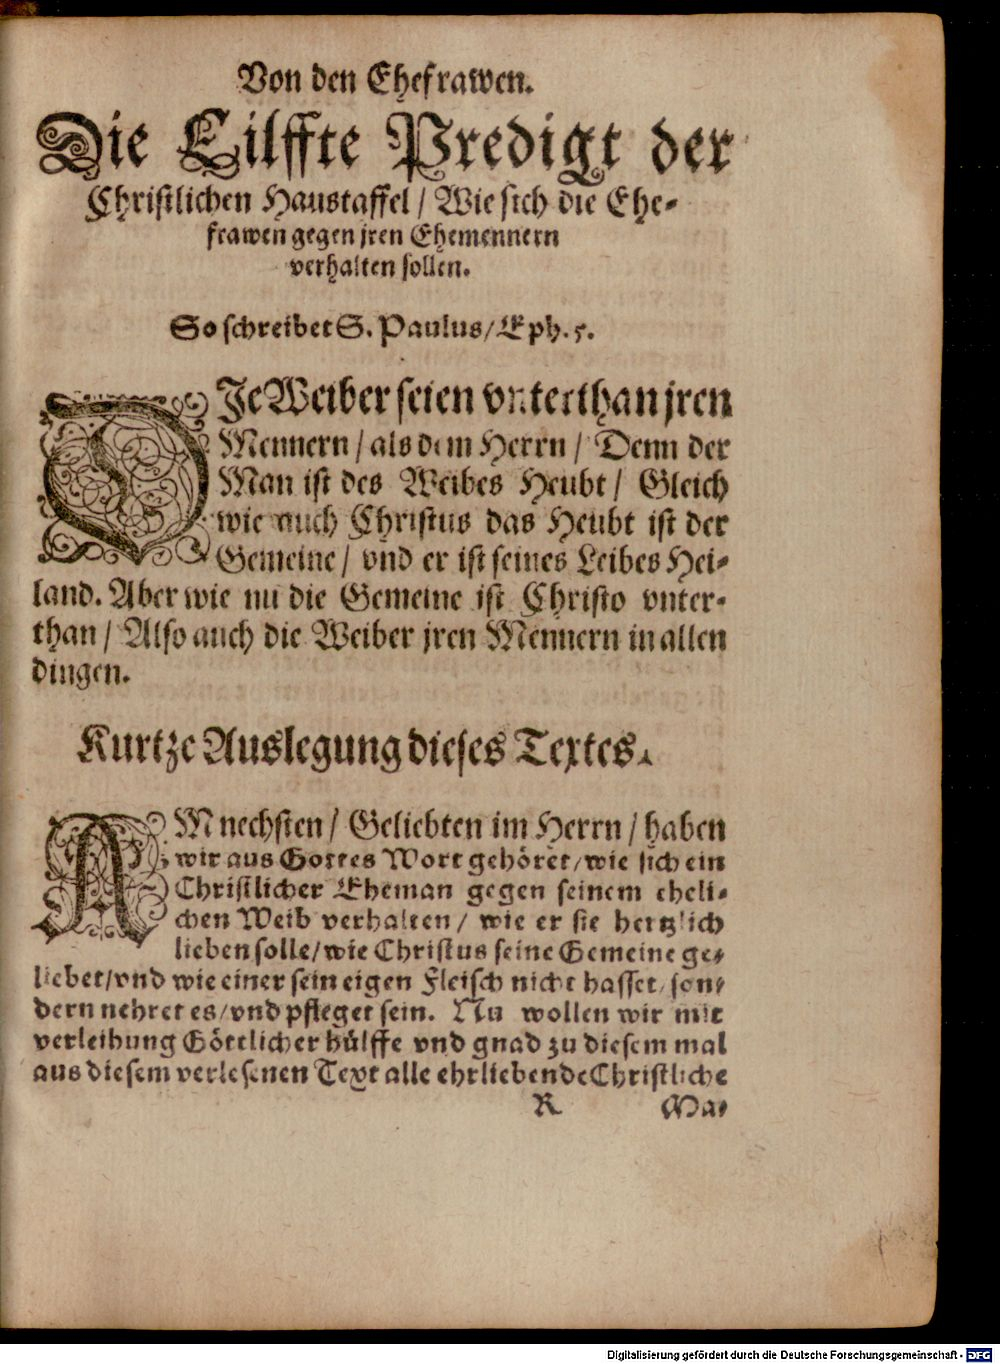 Von den Ehefrawen.
Die Eilffte Predigt der
Christlichen Haustaffel / Wie sich die Ehe-
frawen gegen jren Ehemennern
verhalten sollen.
So schreibet S. Paulus / Eph. 5.
DJe Weiber seien vnterthan jren
Mennern / als dem Herrn / Denn der
Man ist des Weibes Heubt / Gleich
wie auch Christus das Heubt ist der
Gemeine / vnd er ist seines Leibes Hei-
land. Aber wie nu die Gemeine ist Christo vnter-
than / Also auch die Weiber jren Mennern in allen
dingen.
Kurtze Auslegung dieses Textes.
AM nechsten / Geliebten im Herrn / haben
wir aus Gottes Wort gehöret / wie sich ein
Christlicher Eheman gegen seinem eheli-
chen Weib verhalten / wie er sie hertzlich
lieben solle / wie Christus seine Gemeine ge-
liebet / vnd wie einer sein eigen Fleisch nicht hasset / son-
dern nehret es / vnd pfleget sein. Nu wollen wir mit
verleihung Göttlicher hülffe vnd gnad zu diesem mal
aus diesem verlesenen Text alle ehrliebende Christliche
R Ma-
Digitalisierung gefördert durch die Deutsche Forschungsgemeinschaft - DFG